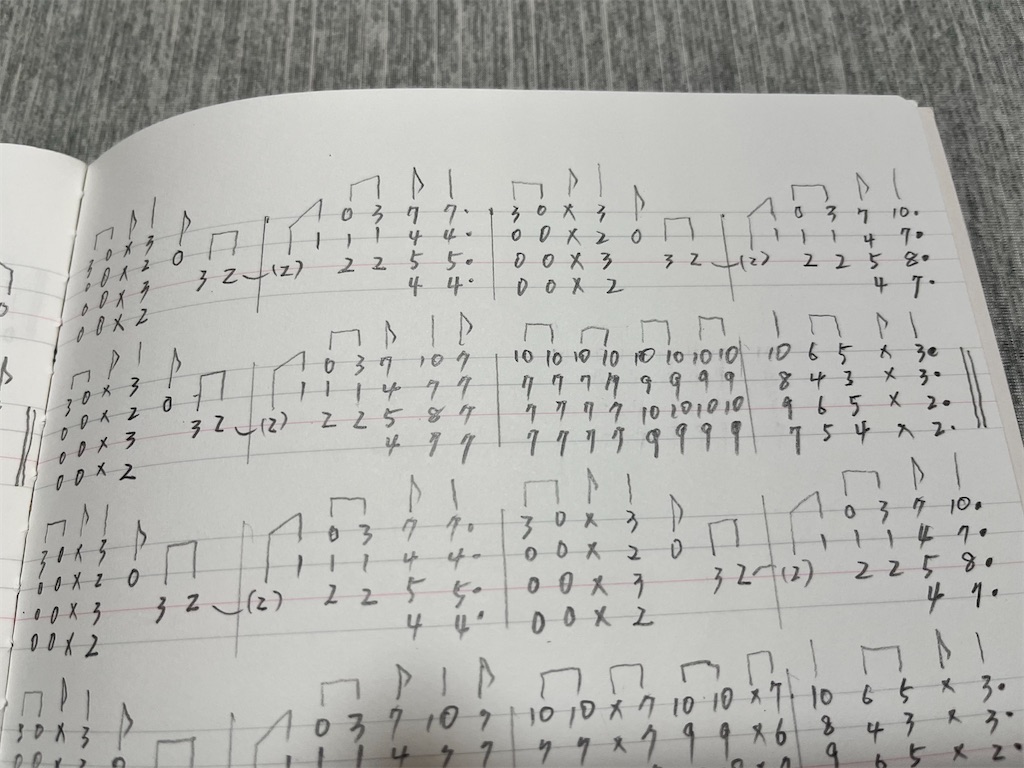 3 0 x 3 | 0 3 7 7. | 3 0 x 3 | 0 3 7 10.
0 0 x 2 0 | 1 1 1 4 4. | 0 0 x 2 0 | 1 1 1 4 7.
0 0 x 3 3 2 | (2) 2 2 5 5. | 0 0 x 3 3 2 | (2) 2 2 5 8.
0 0 x 2 | 4 4. | 0 0 x 2 | 4 7.
3 0 x 3 | 0 3 7 10 7 | 10 10 10 10 10 10 10 10 | 10 6 5 x 3.
0 0 x 2 0 | 1 1 1 4 7 7 | 7 7 7 7 9 9 9 9 | 8 4 3 x 3.
0 0 x 3 3 2 | (2) 2 2 5 8 7 | 7 7 7 7 10 10 10 10 | 9 6 5 x 2.
0 0 x 2 | 4 7 7 | 7 7 7 7 9 9 9 9 | 7 5 4 x 2.
3 0 x 3 | 0 3 7 7. | 3 0 x 3 | 0 3 7 10.
0 0 x 2 0 | 1 1 1 4 4. | 0 0 x 2 0 | 1 1 1 4 7.
0 0 x 3 3 2 | (2) 2 2 5 5. | 0 0 x 3 3 2 | (2) 2 2 5 8.
0 0 x 2 | 4 4. | 0 0 x 2 | 4 7.
3 0 x 3 | 0 3 7 10 7 | 10 10 x 7 10 10 x 7 | 10 6 5 x 3.
0 | 1 1 1 4 7 7 | 7 7 x 7 9 9 x 6 | 8 4 3 x 3.
9 6 5 x 2.